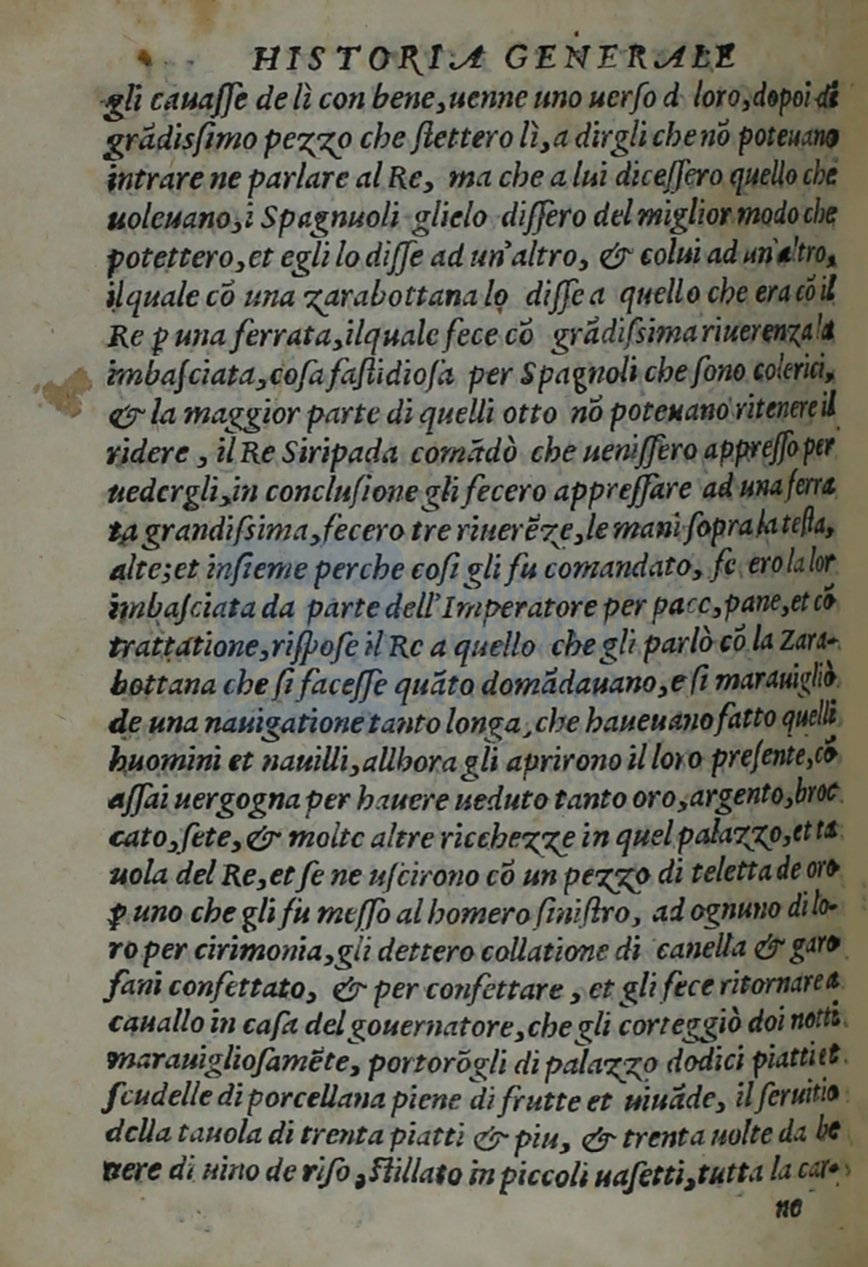 HISTORIA GENERALE
gli cauaſſe de lì con bene,uenne uno uerſo d loro,dopoi di
grãdisſimo pezzo che ſtettero lì,a dirgli che nõ poteuano
intrare ne parlare al Re, ma che a lui diceſſero quello che
uoleuano,i Spagnuoli glielo diſſero del miglior modo che
potettero,et egli lo diſſe ad un'altro, & colui ad un'altro,
ilquale cõ una zarabottana lo diſſe a quello che era cõ il
Re ꝑ una ferrata,ilquale fece cõ grãdiſsima riuerenza la
imbaſciata,coſa faſtidioſa per Spagnoli che ſono colerici,
& la maggior parte di quelli otto nõ poteuano ritenere il
ridere , il Re Siripada comãdò che ueniſſero appreſſo per
uedergli,in concluſione gli fecero appreſſare ad una ferra
ta grandiſsima,fecero tre riuerẽze,le mani ſopra la teſta,
alte;et inſieme perche coſi gli fu comandato, fe erola lor
imbaſciata da parte dell'Imperatore per pace,pane,et cõ
trattatione,riſpoſe il Re a quello che gli parlò cõ la Zara-
bottana che ſi faceſſe quãto domãdauano,e ſi marauigliò
de una nauigatione tanto longa,che haueuano fatto quelli
huomini et nauilli,allhora gli aprirono il loro preſente,cõ
aſſai uergogna per hauere ueduto tanto oro,argento,broc
cato,ſete,& molte altre ricchezze in quel palazzo,et ta
uola del Re,et ſe ne uſcirono cõ un pezzo di teletta de oro
ꝑ uno che gli fu meſſo al homero ſiniſtro, ad ognuno di lo-
ro per cirimonia,gli dettero collatione di canella & garo
fani confettato, & per confettare , et gli fece ritornare a
cauallo in caſa del gouernatore,che gli corteggiò doi notti
marauiglioſamẽte, portorõgli di palazzo dodici piatti et
ſcudelle di porcellana piene di frutte et uiuãde, il ſeruitio
della tauola di trenta piatti & piu, & trenta uolte da be
uere di uino de riſo,ſtillato in piccoli uaſetti,tutta la car-
ne